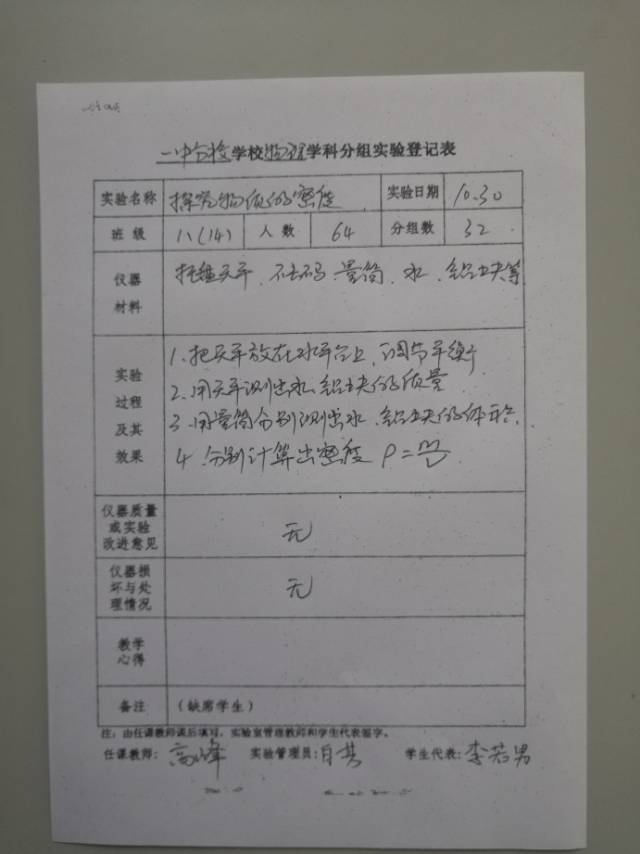 一中分校学校物理学科分组实验登记表
实验名称 探究物质的密度 实验日期 10.30
班 级 八(14) 人 数 64 分组数 32
仪器材料 托盘天平、砝码、量筒、水、铝块等
实验过程及其效果
1、把天平放在水平台上,调节平衡
2、用天平测出水、铝块的质量
3、用量筒分别测出水、铝块的体积.
4、分别计算出密度 ρ=m/v
仪器质量或实验改进意见 无
仪器损坏与处理情况 无
教学心得
备注 (缺席学生)
注:由任课教师课后填写,实验室管理教师和学生代表签字。
任课教师:高峰 实验管理员:白其 学生代表:李若男